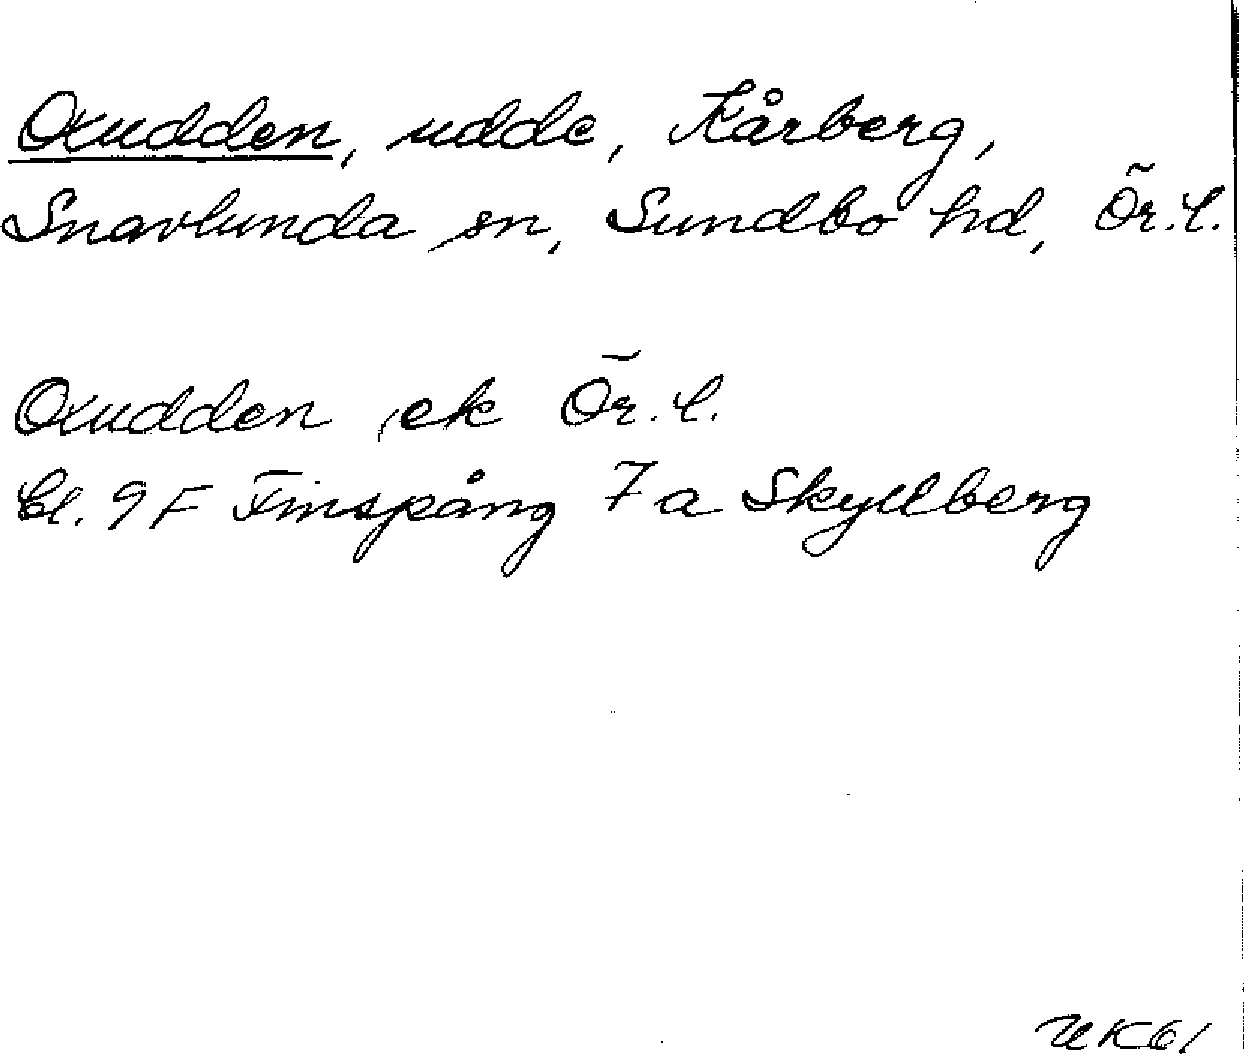 Oxudden, udde, Kårberg,
Snavlunda sn, Sundbo hd, Ör.l.
Oxudden ek Ör.l.
bl. 9F Finspång 7a Skyllberg
UK61